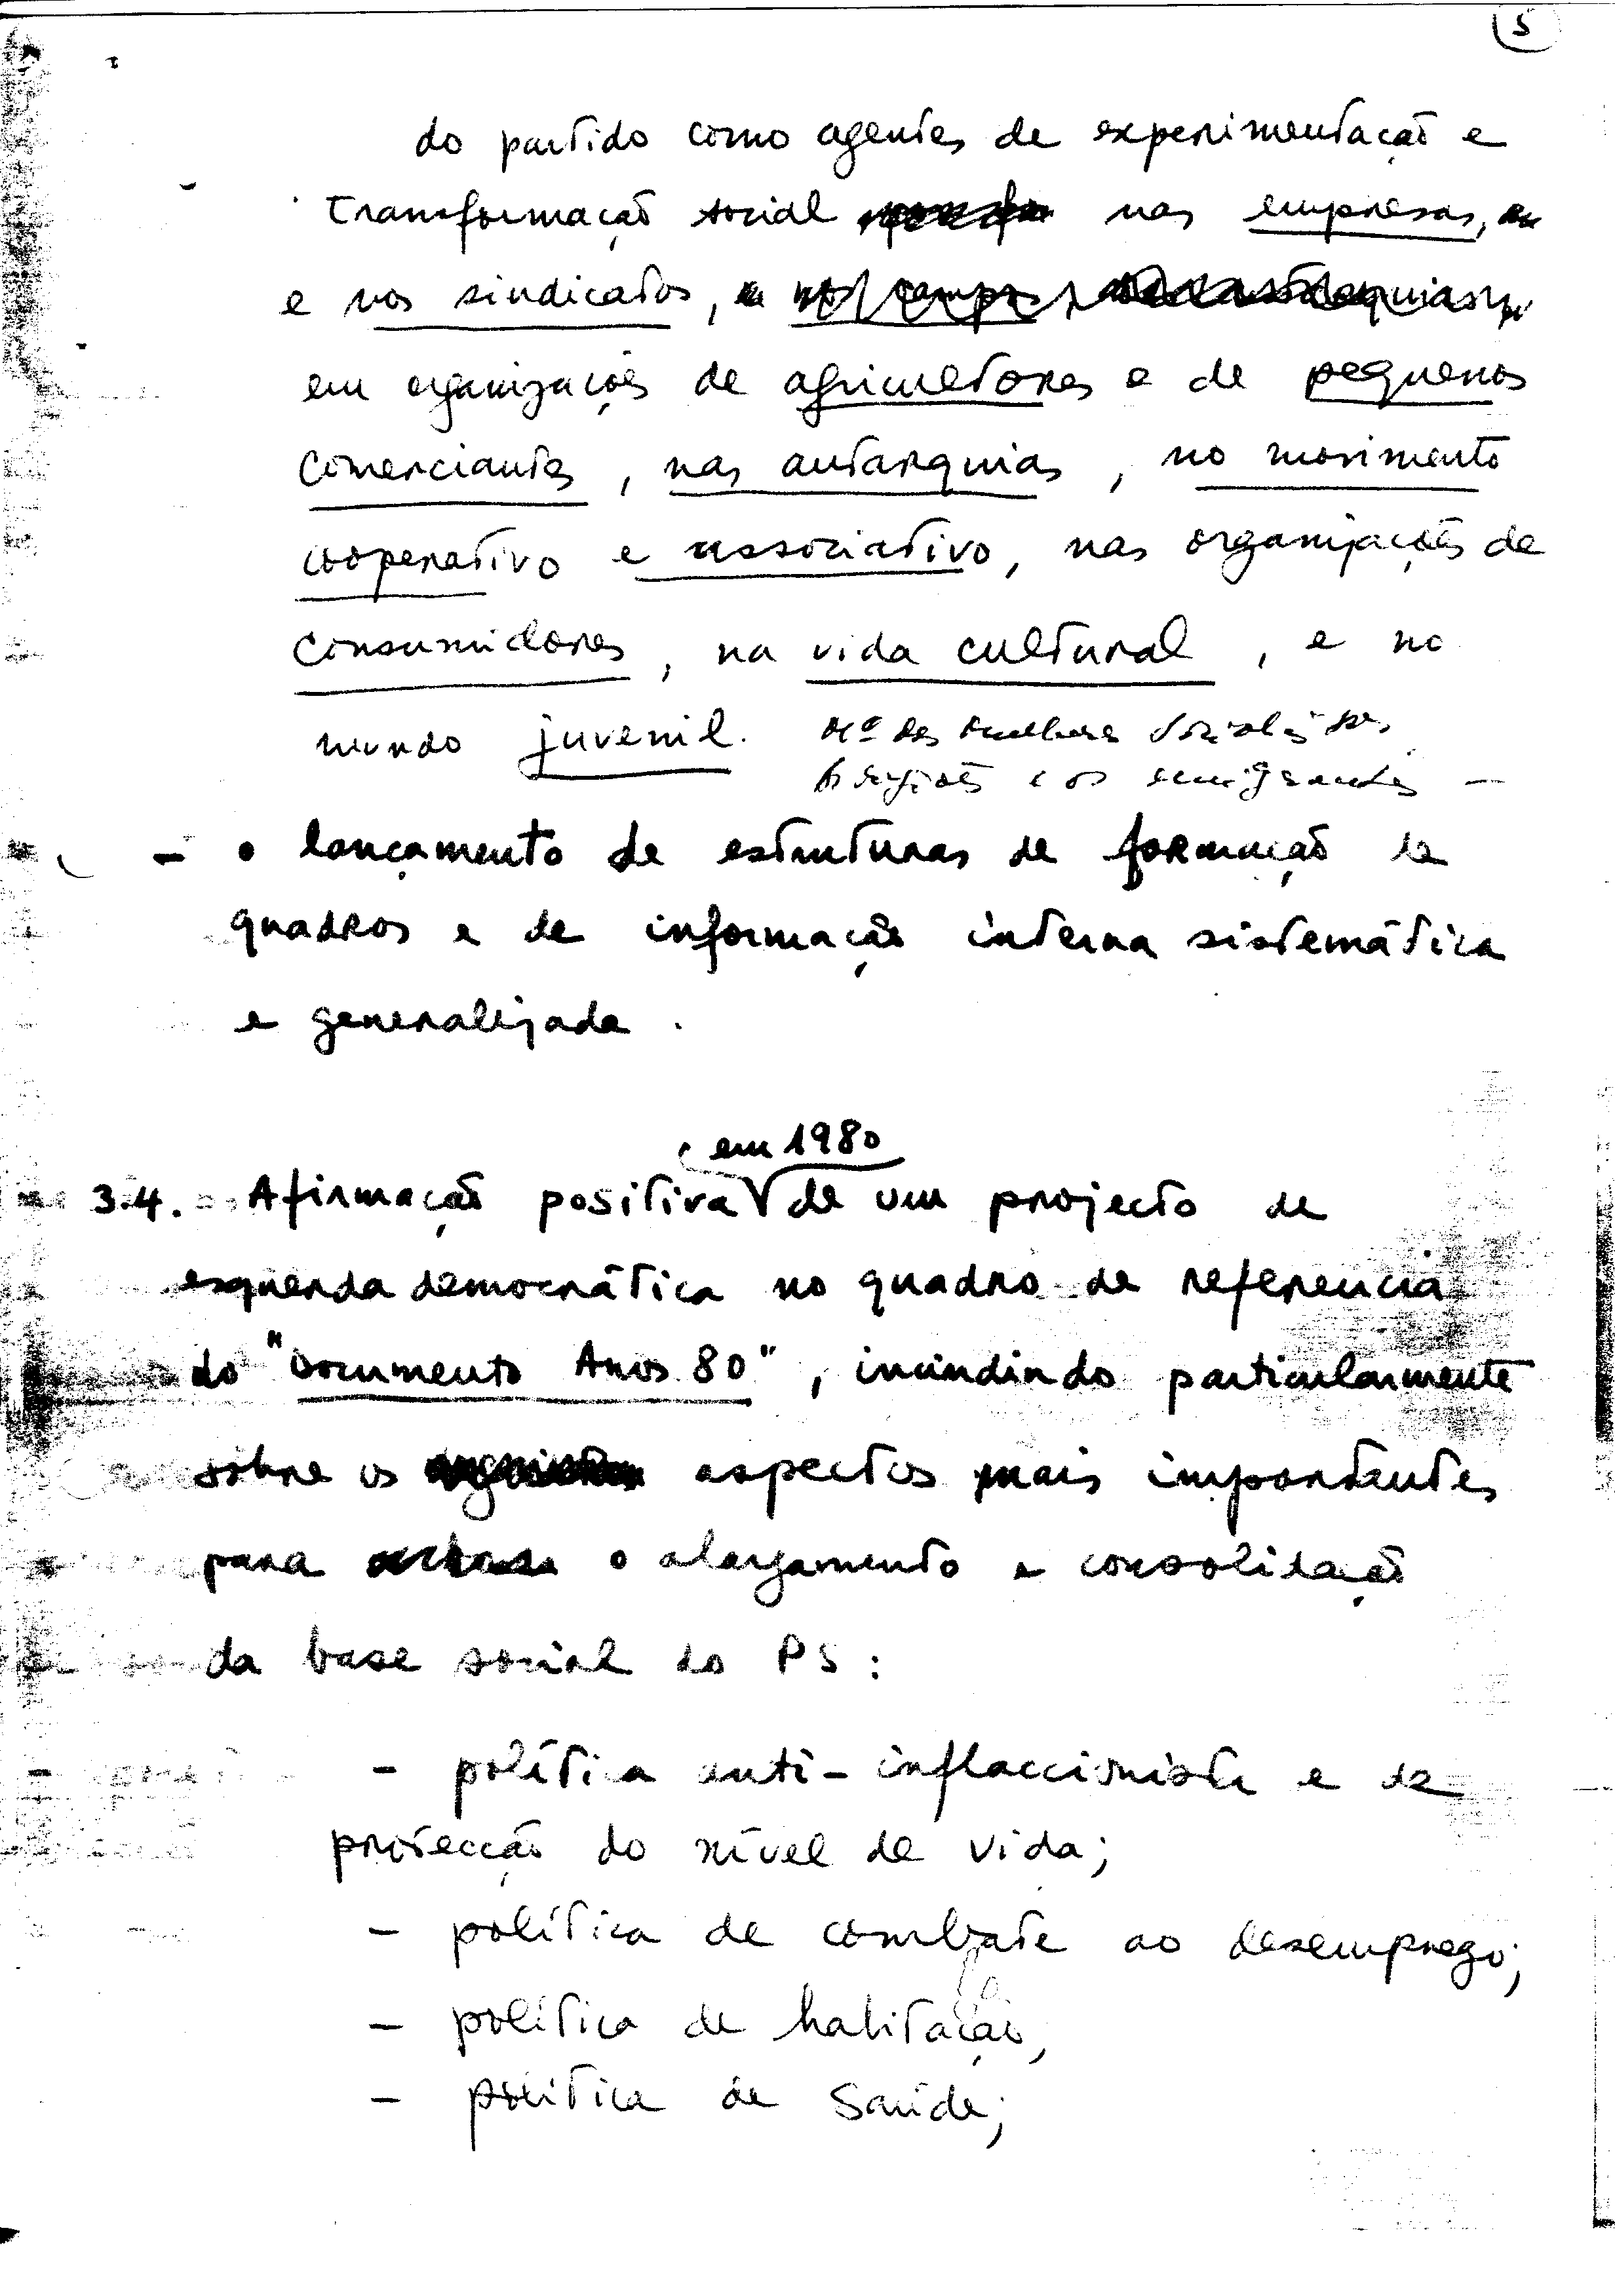 5
do partido como agentes de experimentação e
transformação social nas empresas,
e nos sindicatos,
em organizações de agricultores e de pequenos
comerciantes, nas autarquias, no movimento
cooperativo e associativo, nas organizações de
consumidores, na vida cultural, e no
mundo juvenil. Mº das mulheres socialistas,
e os emigrantes —
- o lançamento de estruturas de formação de
quadros e de informação interna sistemática
e generalizada.
em 1980
3.4. Afirmação positiva de um projecto de
esquerda democrática no quadro de referencia
do "Documento Anos 80", incindindo particularmente
sobre os aspectos mais importantes
para o alargamento e consolidação
da base social do PS:
- política anti-inflaccionista e de
protecção do nível de vida;
- política de combate ao desemprego;
- política de habitação,
- política de saúde;